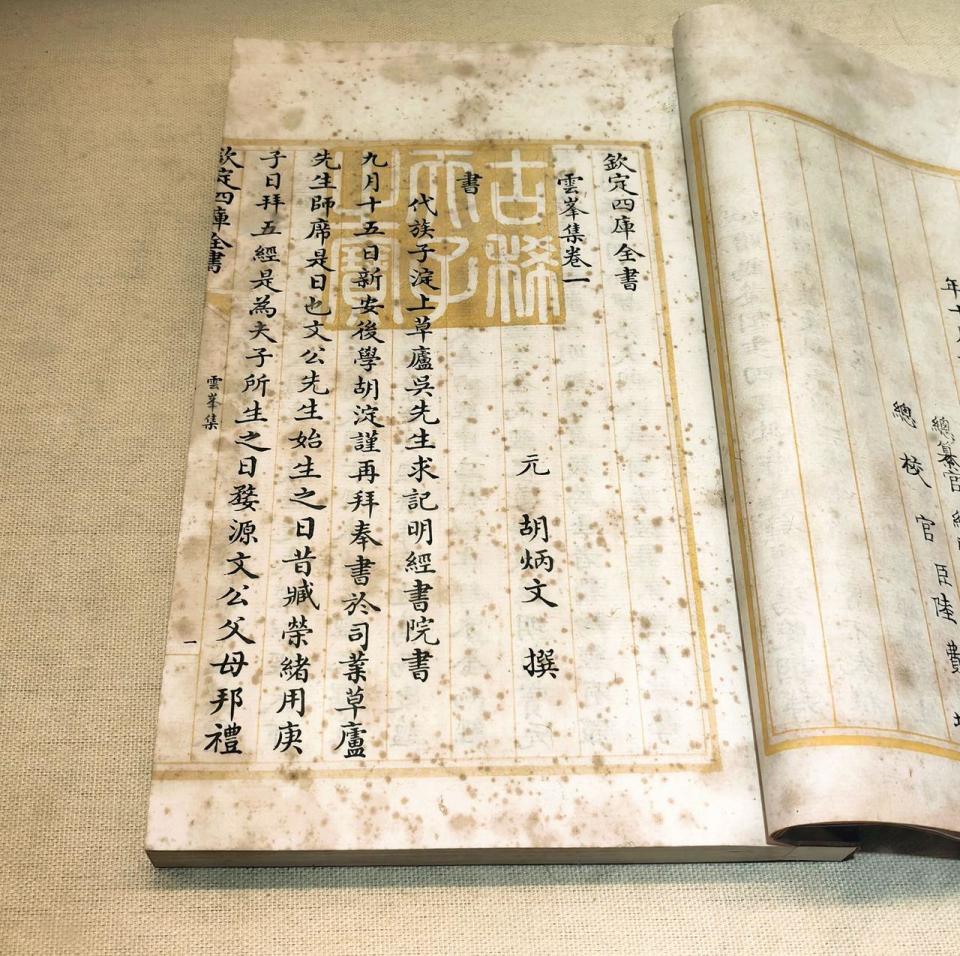 欽定四庫全書
雲峯集卷一
元 胡炳文 撰
書
代族子淀上草廬吳先生求記明經書院書
九月十五日新安後學胡淀謹再拜奉書於司業草廬
先生師席是日也文公先生始生之日昔臧榮緒用庚
子日拜五經是為夫子所生之日婺源文公父母邦禮
欽定四庫全書
雲峯集
一
古稀天子之寶
總校官臣陸費
總纂官